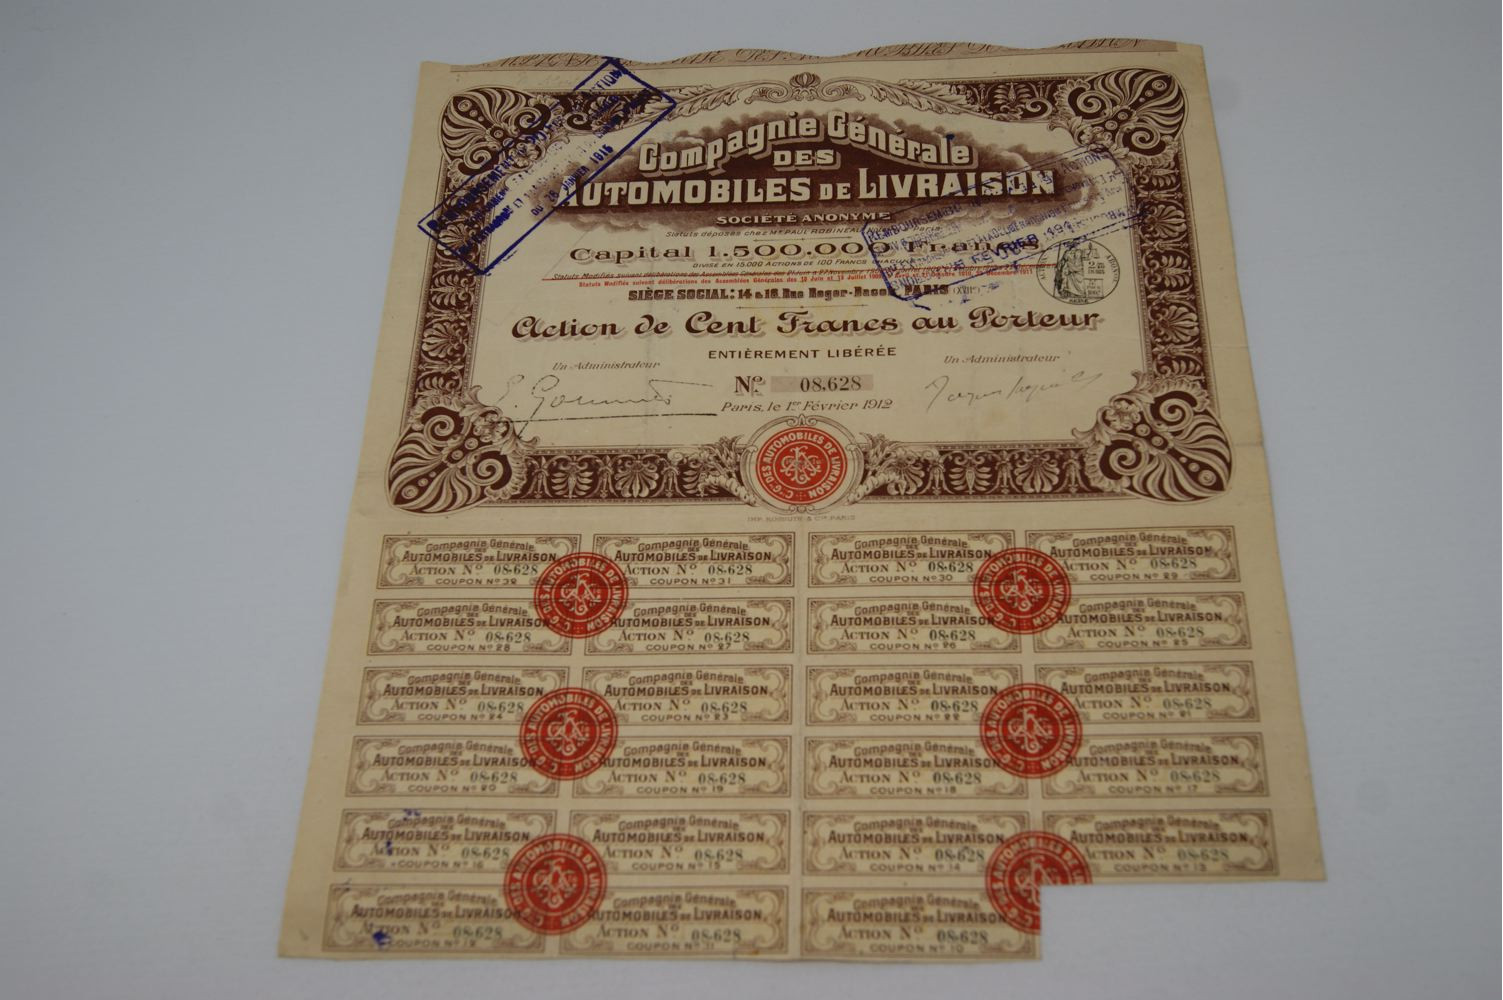 Compagnie Générale
DES
AUTOMOBILES DE LIVRAISON
SOCIÉTÉ ANONYME
Statuts déposés chez Me PAUL ROBINEAU
Capital 1.500.000 Francs
DIVISÉ EN 15.000 ACTIONS DE 100 FRANCS CHACUNE
Statuts Modifiés suivant délibérations des Assemblées Générales des
Statuts Modifiés suivant délibérations des Assemblées Générales des 10 Juin et 13 Juillet 1909 1911
SIÈGE SOCIAL: 14 & 16, Rue Roger-Bacon, PARIS (XVIIe)
Action de Cent Francs au Porteur
ENTIÈREMENT LIBÉRÉE
Un Administrateur
Un Administrateur
No 08.628
Paris, le 1er Février 1912
Cie Gle DES AUTOMOBILES DE LIVRAISON
IMP. KOSSUTH & Cie PARIS
Compagnie Générale
DES
AUTOMOBILES DE LIVRAISON
ACTION No 08·628
COUPON No 32
Compagnie Générale
DES
AUTOMOBILES DE LIVRAISON
ACTION No 08·628
COUPON No 31
Compagnie Générale
DES
AUTOMOBILES DE LIVRAISON
ACTION No 08·628
COUPON No 30
Compagnie Générale
DES
AUTOMOBILES DE LIVRAISON
ACTION No 08·628
COUPON No 29
Compagnie Générale
DES
AUTOMOBILES DE LIVRAISON
ACTION No 08·628
COUPON No 28
Compagnie Générale
DES
AUTOMOBILES DE LIVRAISON
ACTION No 08·628
COUPON No 27
Compagnie Générale
DES
AUTOMOBILES DE LIVRAISON
ACTION No 08·628
COUPON No 26
Compagnie Générale
DES
AUTOMOBILES DE LIVRAISON
ACTION No 08·628
COUPON No 25
Compagnie Générale
DES
AUTOMOBILES DE LIVRAISON
ACTION No 08·628
COUPON No 24
Compagnie Générale
DES
AUTOMOBILES DE LIVRAISON
ACTION No 08·628
COUPON No 23
Compagnie Générale
DES
AUTOMOBILES DE LIVRAISON
ACTION No 08·628
COUPON No 22
Compagnie Générale
DES
AUTOMOBILES DE LIVRAISON
ACTION No 08·628
COUPON No 21
Compagnie Générale
DES
AUTOMOBILES DE LIVRAISON
ACTION No 08·628
COUPON No 20
Compagnie Générale
DES
AUTOMOBILES DE LIVRAISON
ACTION No 08·628
COUPON No 19
Compagnie Générale
DES
AUTOMOBILES DE LIVRAISON
ACTION No 08·628
COUPON No 18
Compagnie Générale
DES
AUTOMOBILES DE LIVRAISON
ACTION No 08·628
COUPON No 17
Compagnie Générale
DES
AUTOMOBILES DE LIVRAISON
ACTION No 08·628
COUPON No 16
Compagnie Générale
DES
AUTOMOBILES DE LIVRAISON
ACTION No 08·628
COUPON No 15
Compagnie Générale
DES
AUTOMOBILES DE LIVRAISON
ACTION No 08·628
COUPON No 14
Compagnie Générale
DES
AUTOMOBILES DE LIVRAISON
ACTION No 08·628
COUPON No 13
Compagnie Générale
DES
AUTOMOBILES DE LIVRAISON
ACTION No 08·628
COUPON No 12
Compagnie Générale
DES
AUTOMOBILES DE LIVRAISON
ACTION No 08·628
COUPON No 11
Compagnie Générale
DES
AUTOMOBILES DE LIVRAISON
ACTION No 08·628
COUPON No 10